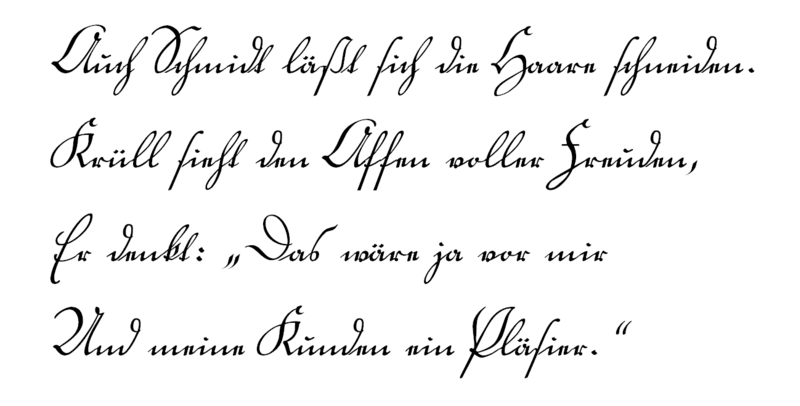 Auch Schmidt läßt sich die Haare schneiden.
Krüll sieht den Affen voller Freuden,
Er denkt: „Das wäre ja vor mir
Und meine Kunden ein Pläsier.“